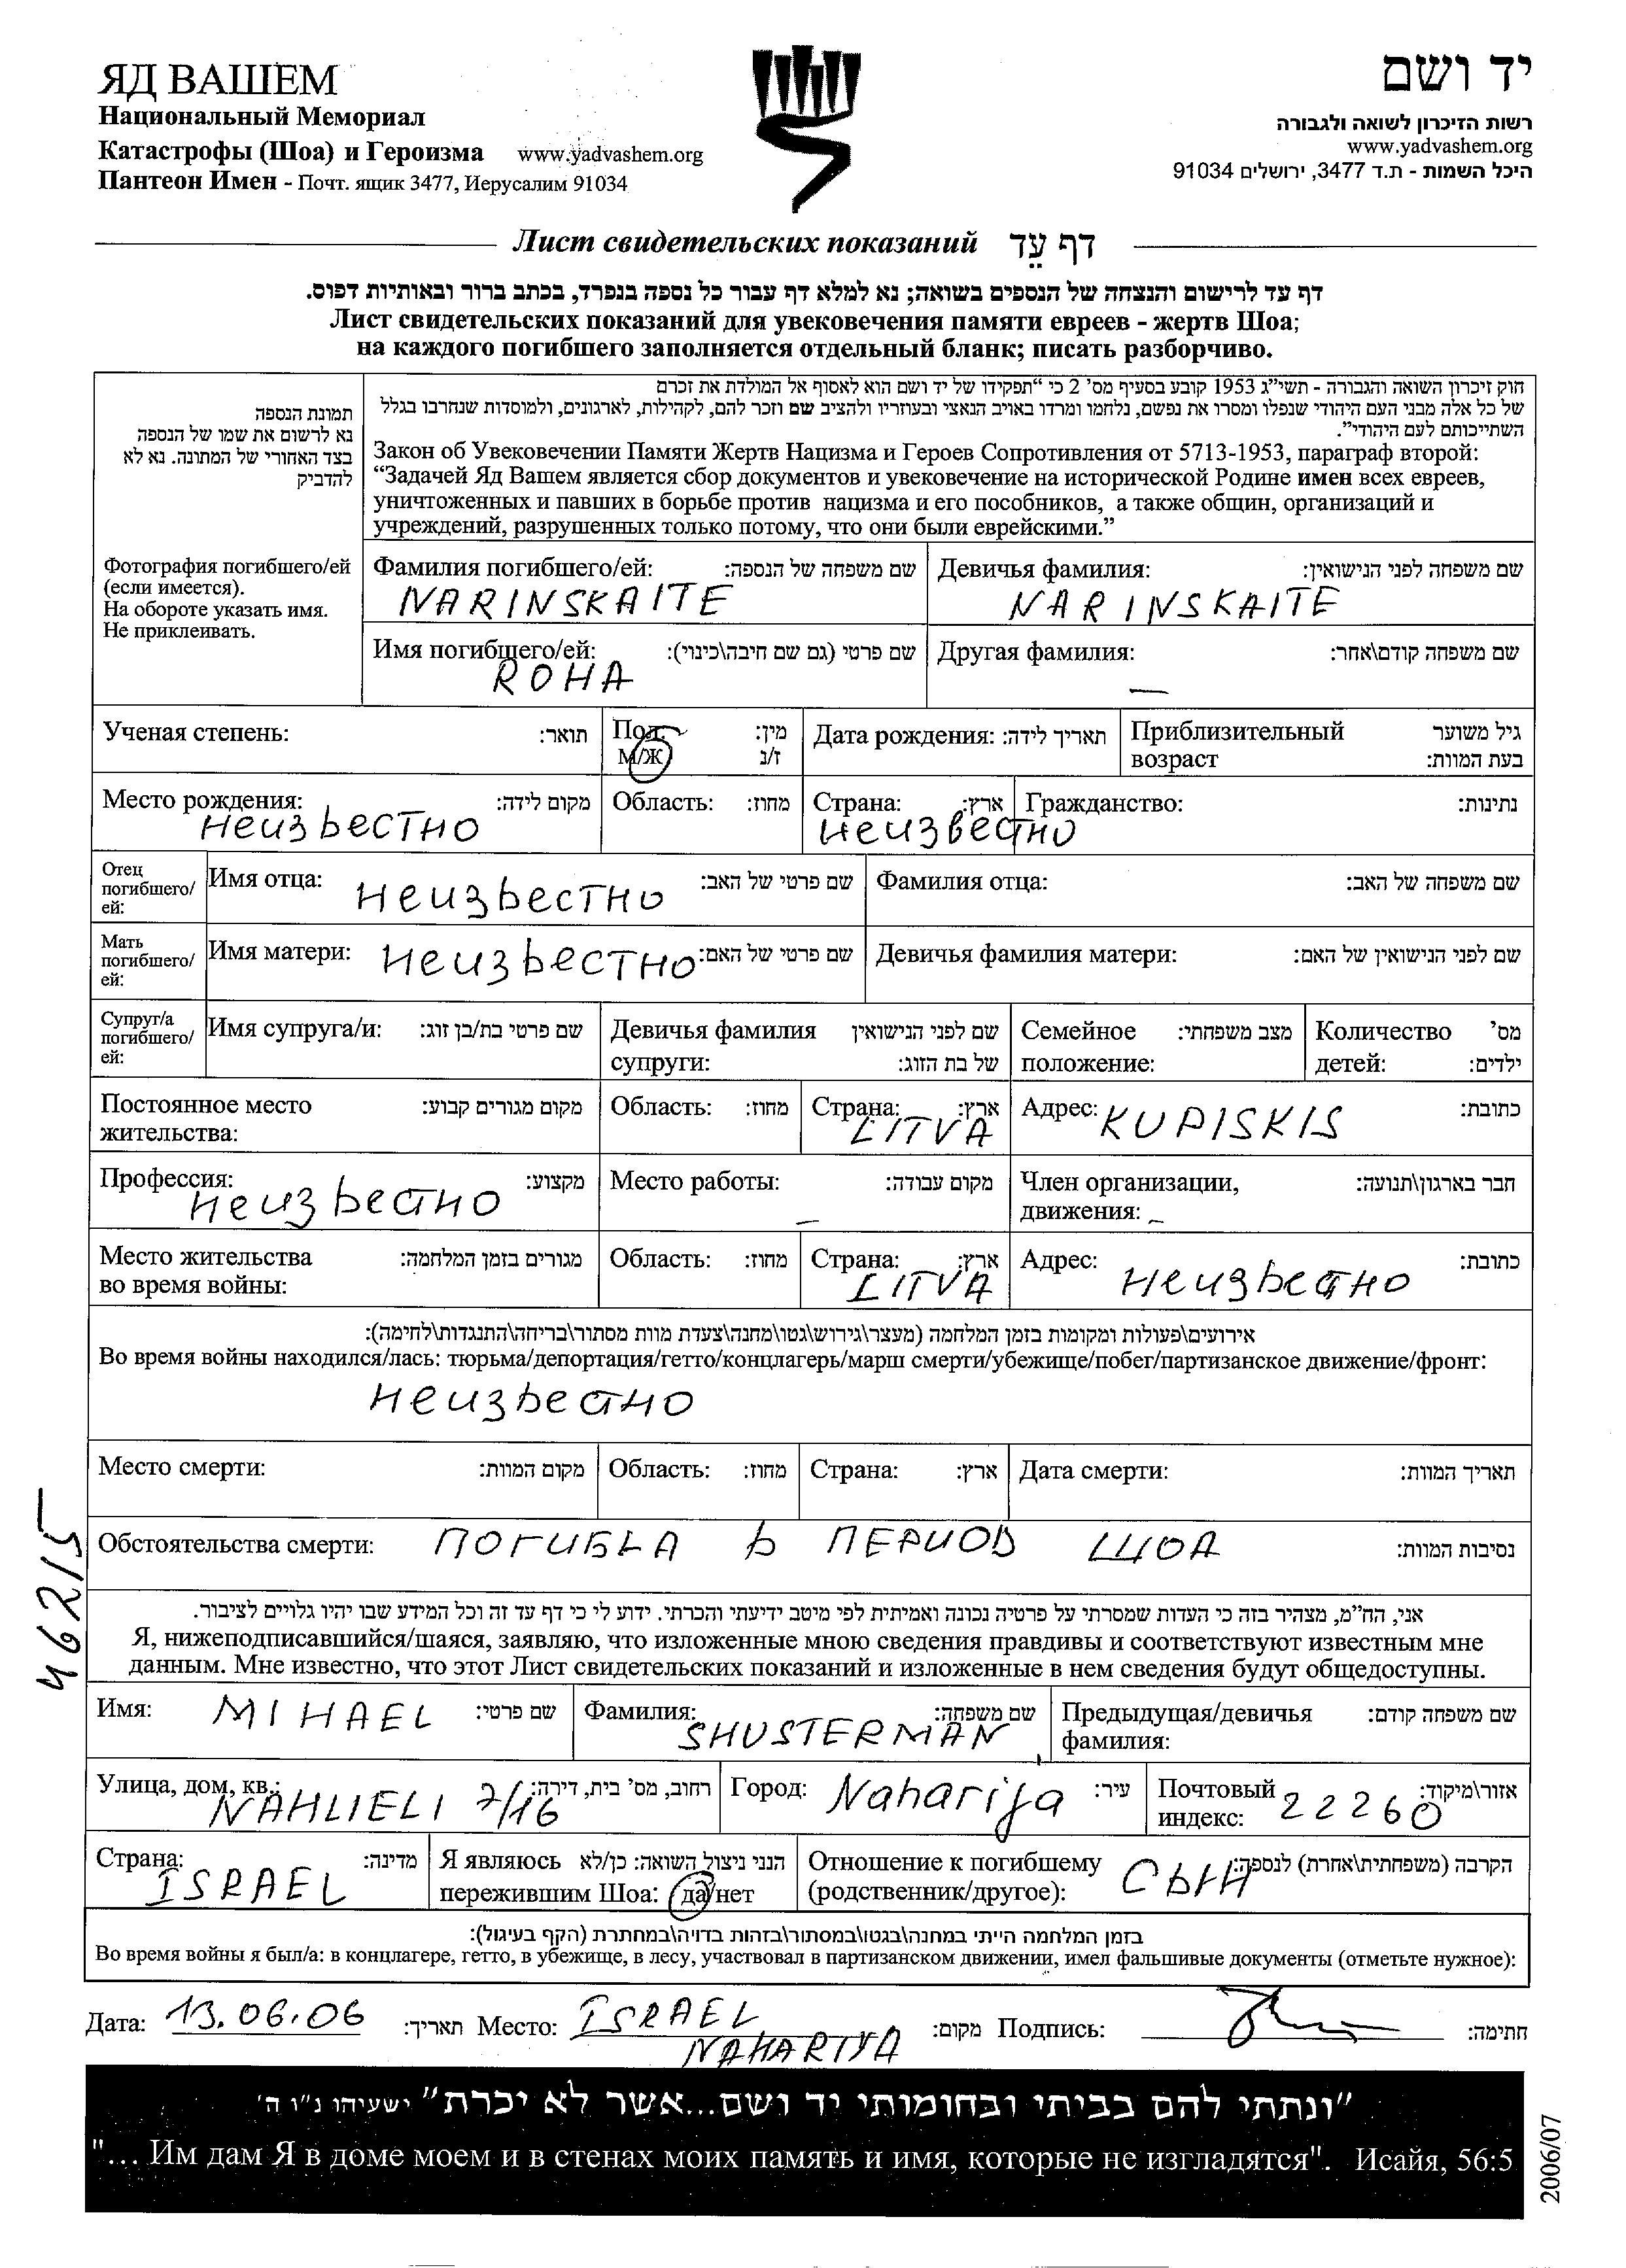 ЯД ВАШЕМ
Национальный Мемориал
Катастрофы (Шоа) и Героизма www.yadvashem.org
Пантеон Имен - Почт. ящик 3477, Иерусалим 91034
יד ושם
רשות הזיכרון לשואה ולגבורה
www.yadvashem.org
היכל השמות - ת.ד 3477, ירושלים 91034
Лист свидетельских показаний דף עֵד
דף עד לרישום והנצחה של הנספים בשואה; נא למלא דף עבור כל נספה בנפרד, בכתב ברור ובאותיות דפוס.
Лист свидетельских показаний для увековечения памяти евреев - жертв Шоа;
на каждого погибшего заполняется отдельный бланк; писать разборчиво.
תמונת הנספה
נא לרשום את שמו של הנספה
בצד האחורי של המתונה. נא לא
להדביק
חוק זיכרון השואה והגבורה - תשי"ג 1953 קובע בסעיף מס' 2 כי "תפקידו של יד ושם הוא לאסוף אל המולדת את זכרם
של כל אלה מבני העם היהודי שנפלו ומסרו את נפשם, נלחמו ומרדו באויב הנאצי ובעוזריו ולהציב שם וזכר להם, לקהילות, לארגונים, ולמוסדות שנחרבו בגלל
השתייכותם לעם היהודי".
Закон об Увековечении Памяти Жертв Нацизма и Героев Сопротивления от 5713-1953, параграф второй:
"Задачей Яд Вашем является сбор документов и увековечение на исторической Родине имен всех евреев,
уничтоженных и павших в борьбе против нацизма и его пособников, а также общин, организаций и
учреждений, разрушенных только потому, что они были еврейскими."
Фотография погибшего/ей
(если имеется).
На обороте указать имя.
Не приклеивать.
Фамилия погибшего/ей: שם משפחה של הנספה:
NARINSKAITE
Девичья фамилия: שם משפחה לפני הנישואין:
NARINSKAITE
Имя погибшего/ей: שם פרטי (גם שם חיבה\כינוי):
ROHA
Другая фамилия: שם משפחה קודם\אחר:
—
Ученая степень: תואר:
Пол: מין:
М/Ж ז/נ
Дата рождения: תאריך לידה:
Приблизительный גיל משוער
возраст בעת המוות:
Место рождения: מקום לידה:
неизвестно
Область: מחוז:
Страна: ארץ:
неизвестно
Гражданство: נתינות:
Отец
погибшего/
ей:
Имя отца: неизвестно שם פרטי של האב:
Фамилия отца: שם משפחה של האב:
Мать
погибшего/
ей:
Имя матери: неизвестно שם פרטי של האם:
Девичья фамилия матери: שם לפני הנישואין של האם:
Супруг/а
погибшего/
ей:
Имя супруга/и: שם פרטי בת/בן זוג:
Девичья фамилия שם לפני הנישואין
супруги: של בת הזוג:
Семейное מצב משפחתי:
положение:
Количество מס'
детей: ילדים:
Постоянное место מקום מגורים קבוע:
жительства:
Область: מחוז:
Страна: ארץ:
LITVA
Адрес: KUPISKIS כתובת:
Профессия: מקצוע:
неизвестно
Место работы: מקום עבודה:
—
Член организации, חבר בארגון\תנועה:
движения: –
Место жительства מגורים בזמן המלחמה:
во время войны:
Область: מחוז:
Страна: ארץ:
LITVA
Адрес: неизвестно כתובת:
אירועים\פעולות ומקומות בזמן המלחמה (מעצר\גירוש\גטו\מחנה\צעדת מוות מסתור\בריחה\התנגדות\לחימה):
Во время войны находился/лась: тюрьма/депортация/гетто/концлагерь/марш смерти/убежище/побег/партизанское движение/фронт:
неизвестно
Место смерти: מקום המוות:
Область: מחוז:
Страна: ארץ:
Дата смерти: תאריך המוות:
Обстоятельства смерти: ПОГИБЛА в ПЕРИОD ШОА נסיבות המוות:
אני, הח"מ, מצהיר בזה כי העדות שמסרתי על פרטיה נכונה ואמיתית לפי מיטב ידיעתי והכרתי. ידוע לי כי דף עד זה וכל המידע שבו יהיו גלויים לציבור.
Я, нижеподписавшийся/шаяся, заявляю, что изложенные мною сведения правдивы и соответствуют известным мне
данным. Мне известно, что этот Лист свидетельских показаний и изложенные в нем сведения будут общедоступны.
Имя: MIHAEL שם פרטי:
Фамилия: שם משפחה:
SHUSTERMAN
Предыдущая/девичья שם משפחה קודם:
фамилия:
Улица, дом, кв.: רחוב, מס' בית, דירה:
NAHLIELI 7/16
Город: Naharija עיר:
Почтовый אזור\מיקוד:
индекс: 22260
Страна: מדינה:
ISRAEL
Я являюсь הנני ניצול השואה: כן/לא
пережившим Шоа: да/нет
Отношение к погибшему הקרבה (משפחתית\אחרת) לנספה:
(родственник/другое): СЫН
בזמן המלחמה הייתי במחנה\בגטו\במסתור\בזהות בדויה\במחתרת (הקף בעיגול):
Во время войны я был/а: в концлагере, гетто, в убежище, в лесу, участвовал в партизанском движении, имел фальшивые документы (отметьте нужное):
Дата: 13.06.06 תאריך: Место: ISRAEL מקום: Подпись: חתימה:
NAHARIYA
"ונתתי להם בביתי ובחומותי יד ושם...אשר לא יכרת" ישעיהו נ"ו ה'
"... Им дам Я в доме моем и в стенах моих память и имя, которые не изгладятся". Исайя, 56:5
46215
2006/07